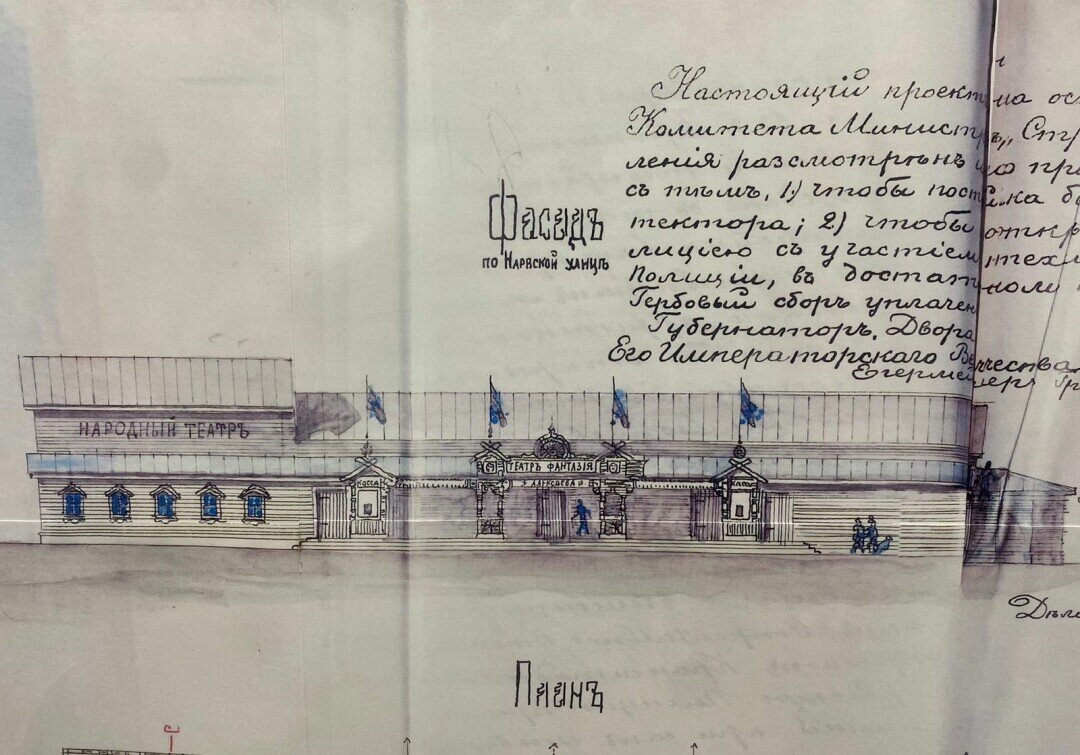 Настоящій проект на ос
Комитета Министръ,, Стр
ленія разсмотрѣнъ и по пр
съ тѣмъ, 1) чтобы постройка б
тектора; 2) чтобы откр
лиціею съ участіем техн
Полиціи, въ достат
Гербовый сборъ уплачен
Губернаторъ, Двора
Его Императорскаго Величества
Егермейстеръ Гр
Фасадъ
по Нарвской улицѣ
НАРОДНЫЙ ТЕАТРЪ
КАССА
ТЕАТРЪ ФАНТАЗІЯ
КАССА
Дѣло
Планъ